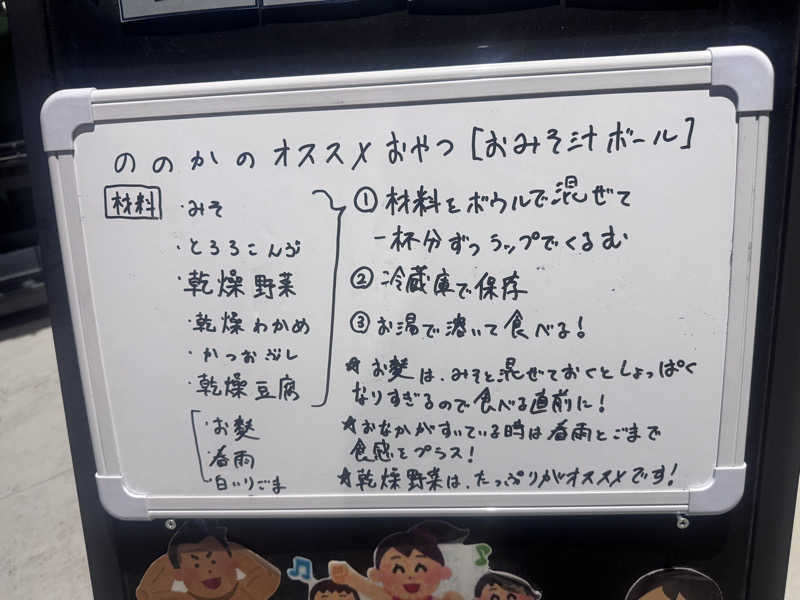 ののかのオススメおやつ[おみそ汁ボール]
材料
・みそ
・とろろこんぶ
・乾燥野菜
・乾燥わかめ
・かつおぶし
・乾燥豆腐
・お麩
・春雨
・白いりごま
①材料をボウルで混ぜて
一杯分ずつラップでくるむ
②冷蔵庫で保存
③お湯で溶いて食べる!
★お麩は、みそと混ぜておくとしょっぱく
なりすぎるので食べる直前に!
★おなかがすいている時は春雨とごまで
食感をプラス!
★乾燥野菜は、たっぷりがオススメです!